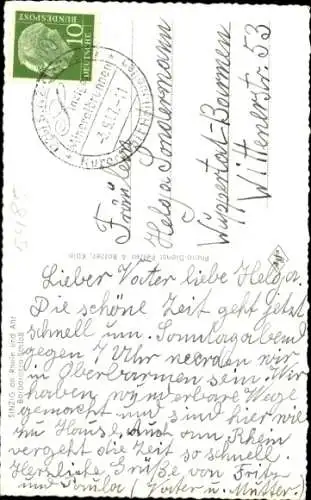 10
DEUTSCHE
BUNDESPOST
Fräulein
Helga Sondermann
Wuppertal-Barmen
Wittenerstr. 53
Photo-Dienst Fetzer & Balzer, Köln
SINZIG an Rhein und Ahr
Barbarossa-Schloß
5485
Lieber Vater liebe Helga.
Die schöne Zeit geht jetzt
schnell um. Sonntagabend
gegen 7 Uhr werden wir
in Oberbarmen sein. Wir
haben wunderbare Wege
gemacht und sind hier wie
zu Hause. Auch am Rhein
vergeht die Zeit so schnell.
Herzliche Grüße von Fritz
und Paula (Vater u. Mutter.)